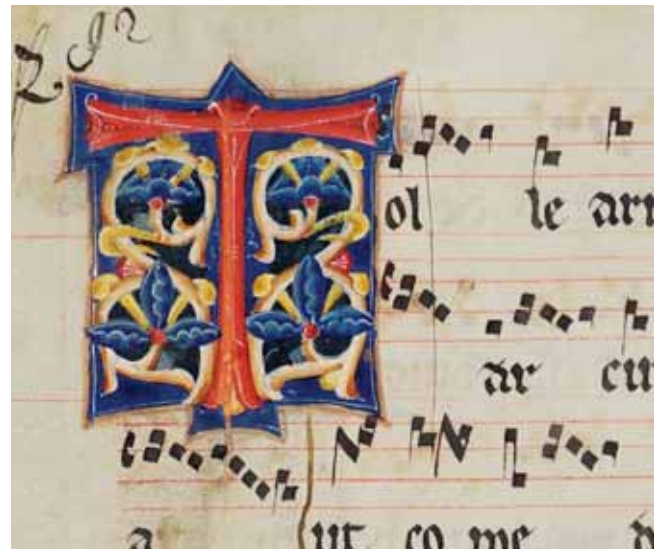 92
Tol le arm
ar cu
a ut co me d